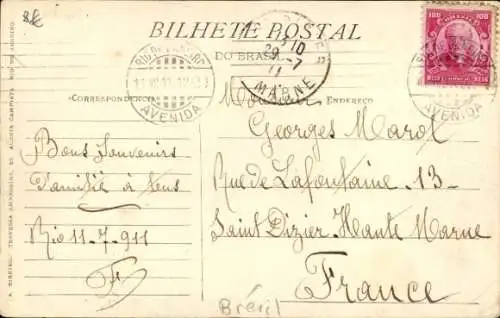 BILHETE POSTAL
DO BRASIL
CORRESPONDENCIA
ENDEREÇO
RIO DE JANEIRO
AVENIDA
MARNE
100 100
Bons Souvenirs
d'amitié à tous
Rio 11-7-911
F
Monsieur
Georges Marot
Rue de Lafontaine 13-
Saint Dizier Haute Marne
France
Brésil